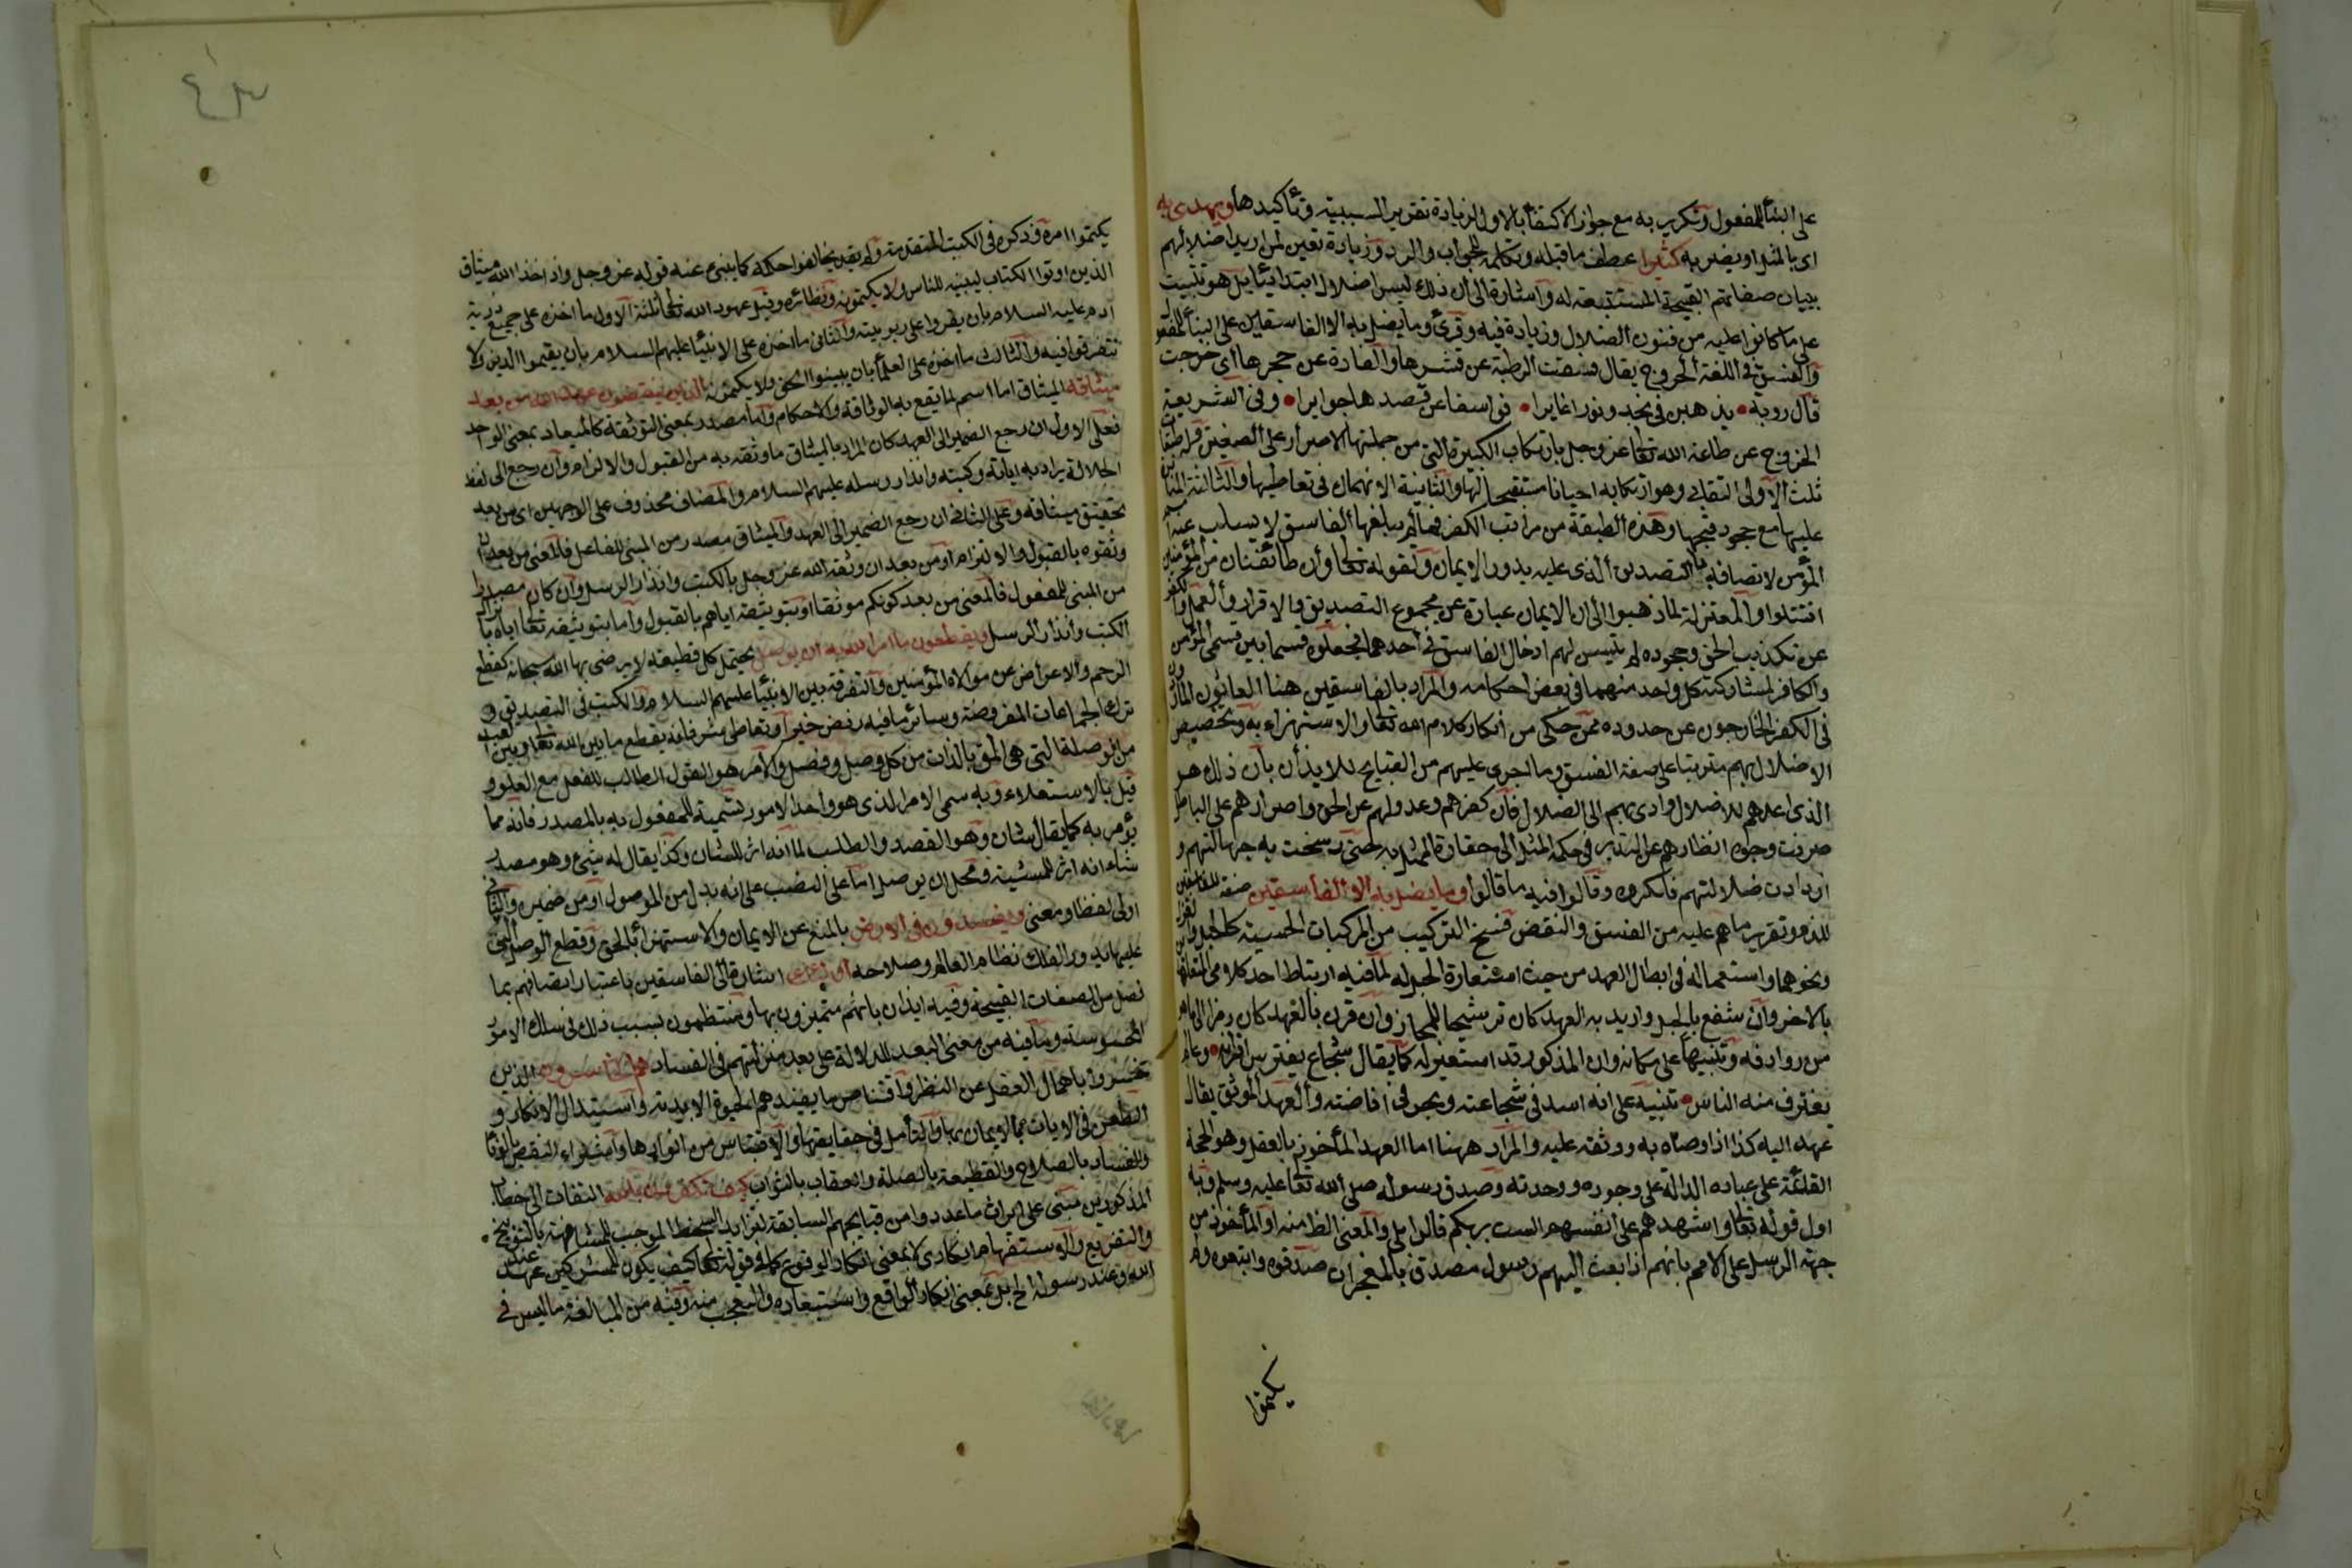 على البنأ للمفعول وتكرير به مع جواز الاكتفأ بالاول لزيادة تقرير السببية وتأكيدها ويهدى به
اى بالمثل او بضربه كثيرا عطف ما قبله وتكلمة للجواب والرد وزيادة تعيين لمن اريد اضلالهم
ببيان صفاتهم القبيحة المستتبعة له واشارة الى ان ذلك ليس اضلالا ابتدائيا بل هو تثبيت
على ما كانوا عليه من فنون الضلال وزيادة فيه وقرئ وما يضل به الا الفاسقين على البنأ للمفعول
والفسق فى اللغة الخروج يقال فسقت الرطبة عن قشرها والفارة عن حجرها اى خرجت
قال روبة يذهبن فى نجد وغورا غايرا فواسقا عن قصدها جوايرا وفى الشريعة
الخروج عن طاعة الله تعا عز وجل بارتكاب الكبيرة التى من جملتها الاصرار على الصغيرة وله طبقات
ثلث الاولى التغابى وهو ارتكابه احيانا مستقبحا لها والثانية الانهماك فى تعاطيها والثالثة المثابرة
عليها مع جحود قبحها وهذه الطبقة من مراتب الكفر فما لم يبلغها الفاسق لا يسلب عنه اسم
المؤمن لاتصافه بالتصديق الذى عليه يدور الايمان ولقوله تعا وان طائفتان من المؤمنين
اقتتلوا والمعتزلة لما ذهبوا الى ان الايمان عبارة عن مجموع التصديق والاقرار والعمل والكفر
عن تكذيب الحق وجحوده لم يتيسر لهم ادخال الفاسق فى احدهما فجعلوه قسما بين قسمى المؤمن
والكافر لمشاركته كل واحد منهما فى بعض احكامه والمراد بالفاسقين ههنا العاتون الماردون
فى الكفر الخارجون عن حدوده ممن حكى من انكار كلام الله تعا والاستهزاء به وتخصيص
الاضلال بهم مترتبا على صفة الفسق وما اجرى عليهم من القبايح للايذان بان ذلك هو
الذى اعدهم للاضلال وادى بهم الى الضلال فان كفرهم وعدولهم عن الحق واصرارهم على الباطل
صرفت وجوه انظارهم عن التدبر فى حكمة المثل الى حقارة الممثل به حتى رسخت به جهالتهم و
ازدادت ضلالتهم فانكروه وقالوا فيه ما قالوا وما يضل به الا الفاسقين صفة للفاسقين
للذم وتقرير ما هم عليه من الفسق والنقض فسخ التركيب من المركبات الحسية كالحبل والغزل
ونحوهما واستعماله فى ابطال العهد من حيث استعارة الحبل له لما فيه ارتباط احد كلامى المتعاهدين
بالاخر وان شفع بالحبل واريد به العهد كان ترشيحا للمجاز وان قرن بالعهد كان رمزا الى ما هو
من روادفه وتنبيها على مكانه وان المذكور قد استعير له كما يقال شجاع يفترس اقرانه وعالم
يغترف منه الناس تنبيه على انه اسد فى شجاعته وبحر فى افاضته والعهد الموثق يقال
عهد اليه كذا اذا وصاه به ووثقه عليه والمراد ههنا اما العهد المأخوذ بالعقل وهو الحجة
القائمة على عباده الدالة على وجوده ووحدته وصدق رسوله صلى الله تعا عليه وسلم وبه
اول قوله تعا واشهدهم على انفسهم الست بربكم قالوا بلى والمعنى الظ منه او المأخوذ من
جهة الرسل على الامم بانهم اذا بعث اليهم رسول مصدق بالمعجزات صدقوه واتبعوه ولم
يكتموا
يكتموا امره وذكره فى الكتب المتقدمة ولم يخالفوا حكمه كما ينبئ عنه قوله عز وجل واذ اخذ الله ميثاق
الذين اوتوا الكتاب ليبيننه للناس ولا يكتمونه ونظائره وقيل عهود الله تعا ثلثة الاول ما اخذه على جميع ذرية
ادم عليه السلام بان يقروا على ربوبيته والثانى ما اخذه على الانبيأ عليهم السلام بان يقيموا الدين ولا
تتفرقوا فيه والثالث ما اخذه على العلمأ بان يبينوا الحق ولا يكتمونه الذين ينقضون عهد الله من بعد
ميثاقه الميثاق اما اسم لما يقع به الوثاقة والاحكام واما مصدر بمعنى التوثقة كالميعاد بمعنى الوعد
فعلى الاول ان رجع الضمير الى العهد كان المراد بالميثاق ما وثقه به من القبول والالتزام وان رجع الى لفظ
الجلالة يراد به اياته وكتبه وانذار رسله عليهم السلام والمضاف محذوف على الوجهين اى من بعد
تحقيق ميثاقه وعلى الثانى ان رجع الضمير الى العهد والميثاق مصدر من المبنى للفاعل فالمعنى من بعد ان
وثقوه بالقبول والالتزام او من بعد ان وثقه الله عز وجل بالكتب وانذار الرسل وان كان مصدرا
من المبنى للمفعول فالمعنى من بعد كونكم موثقا او بتوثيقه اياهم بالقبول واما بتوثيقه تعا اياه بانزال
الكتب وانذار الرسل ويقطعون ما امر الله به ان يوصل يحتمل كل قطيعة لا يرضى بها الله سبحانه كقطع
الرحم والاعراض عن موالاة المؤمنين والتفرقة بين الانبيأ عليهم السلام والكتب فى التصديق و
ترك الجماعات المفروضة وسائر ما فيه رفض خير او تعاطى شر فانه يقطع ما بين الله تعا وبين العبد
من الوصلة التى هى المق بالذات من كل وصل وفصل والامر هو القول الطالب للفعل مع العلو و
قيل بالاستعلاء وبه سمى الامر الذى هو واحد الامور تسمية للمفعول به بالمصدر فانه مما
يؤمر به كما يقال شان وهو القصد والطلب لما انه اثر للشان وكذا يقال له شئ وهو مصدر
شاء انه اثر للمشيئة ومحل ان يوصل اما على النصب على انه بدل من الموصول او من ضميره والثانى
اولى لفظا ومعنى ويفسدون فى الارض بالمنع عن الايمان والاستهزأ بالحق وقطع الوصل التى
عليها يدور الفلك نظام العالم وصلاحه اولئك اشارة الى الفاسقين باعتبار اتصافهم بما
فصل من الصفات القبيحة وفيه ايذان بانهم متميزون بها ومنتظمون بسبب ذلك فى سلك الامور
المحسوسة وما فيه من معنى البعد للدلالة على بعد منزلتهم فى الفساد هم الخاسرون الذين
خسروا باهمال العقل عن النظر واقتناص ما يفيدهم الحيوة الابدية واستبدال الانكار و
الطعن فى الايات بالايمان بها والتأمل فى حقايقها والاقتباس من انوارها واشتراء النقض بالوفا
والفساد بالصلاح والقطيعة بالصلة والعقاب بالثواب كيف تكفرون بالله التفات الى خطاب
المذكورين مبنى على ايراث ما عددوا من قبايحهم السابقة لتزايد السخط الموجب للمشافهة بالتوبيخ
والتقريع والاستفهام انكارى لا بمعنى انكار الوقوع كما فى قوله تعا كيف يكون للمشركين عهد عند
الله وعند رسوله الخ بل بمعنى انكار الواقع واستبعاده والتعجب منه وفيه من المبالغة ما ليس فى